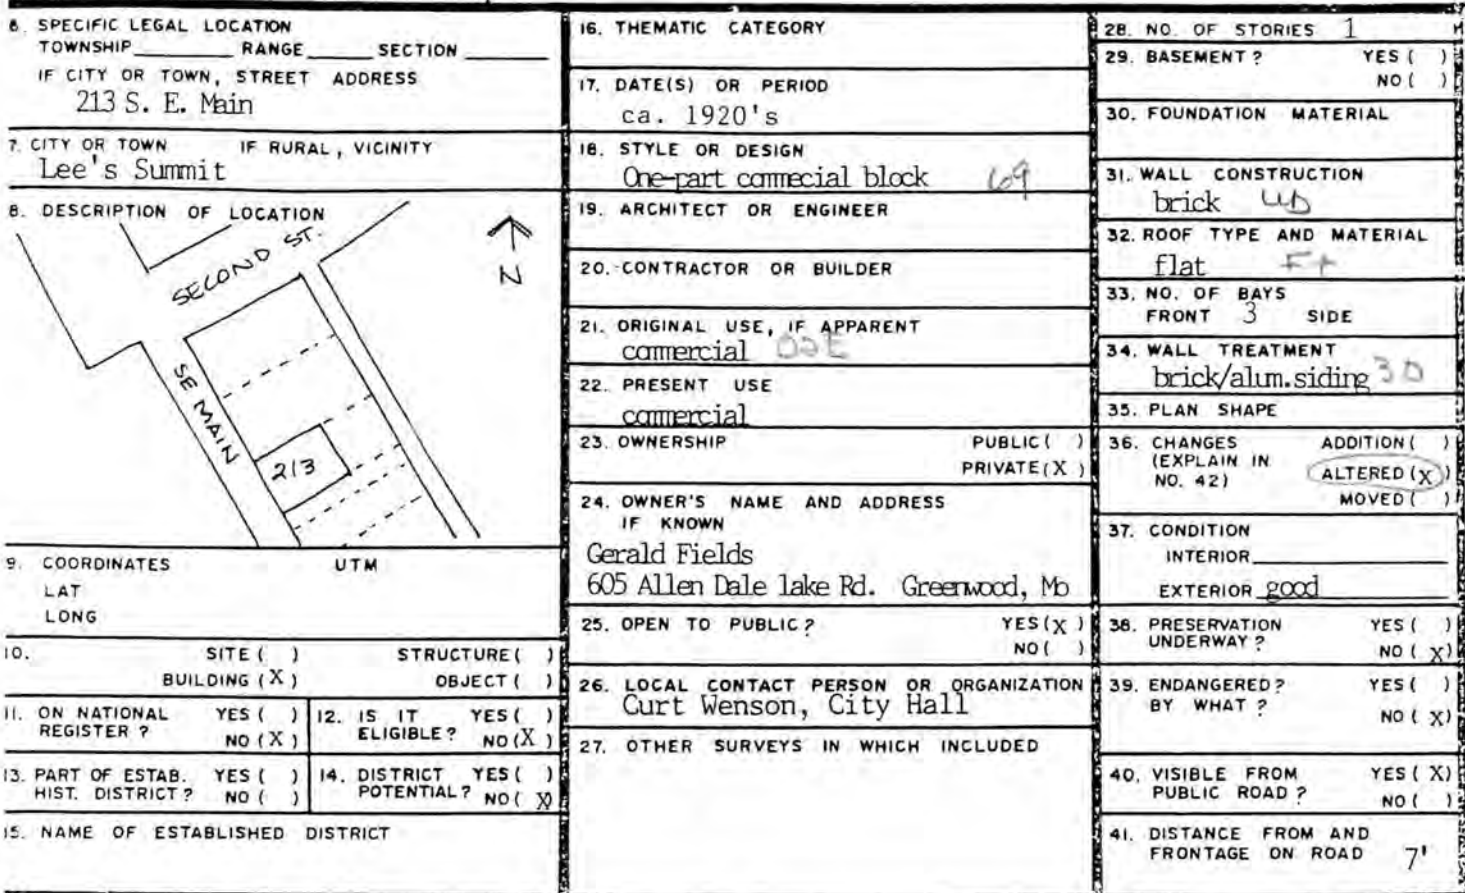 6. SPECIFIC LEGAL LOCATION
TOWNSHIP RANGE SECTION
IF CITY OR TOWN, STREET ADDRESS
213 S. E. Main
7. CITY OR TOWN IF RURAL, VICINITY
Lee's Summit
8. DESCRIPTION OF LOCATION
SECOND ST.
N
SE MAIN
213
9. COORDINATES UTM
LAT
LONG
10. SITE ( ) STRUCTURE ( )
BUILDING (X) OBJECT ( )
11. ON NATIONAL YES ( )
REGISTER ? NO (X)
12. IS IT YES ( )
ELIGIBLE? NO (X)
13. PART OF ESTAB. YES ( )
HIST. DISTRICT ? NO ( )
14. DISTRICT YES ( )
POTENTIAL? NO ( X)
15. NAME OF ESTABLISHED DISTRICT
16. THEMATIC CATEGORY
17. DATE(S) OR PERIOD
ca. 1920's
18. STYLE OR DESIGN
One-part commecial block 69
19. ARCHITECT OR ENGINEER
20. CONTRACTOR OR BUILDER
21. ORIGINAL USE, IF APPARENT
commercial 02E
22. PRESENT USE
commercial
23. OWNERSHIP PUBLIC ( )
PRIVATE (X )
24. OWNER'S NAME AND ADDRESS
IF KNOWN
Gerald Fields
605 Allen Dale lake Rd. Greenwood, Mo
25. OPEN TO PUBLIC? YES (X )
NO ( )
26. LOCAL CONTACT PERSON OR ORGANIZATION
Curt Wenson, City Hall
27. OTHER SURVEYS IN WHICH INCLUDED
28. NO. OF STORIES 1
29. BASEMENT ? YES ( )
NO ( )
30. FOUNDATION MATERIAL
31. WALL CONSTRUCTION
brick UD
32. ROOF TYPE AND MATERIAL
flat
33. NO. OF BAYS
FRONT 3 SIDE
34. WALL TREATMENT
brick/alum.siding 30
35. PLAN SHAPE
36. CHANGES ADDITION ( )
(EXPLAIN IN ALTERED (X)
NO. 42) MOVED ( )
37. CONDITION
INTERIOR
EXTERIOR good
38. PRESERVATION YES ( )
UNDERWAY ? NO ( X)
39. ENDANGERED? YES ( )
BY WHAT ? NO ( X)
40. VISIBLE FROM YES ( X)
PUBLIC ROAD ? NO ( )
41. DISTANCE FROM AND
FRONTAGE ON ROAD 7'